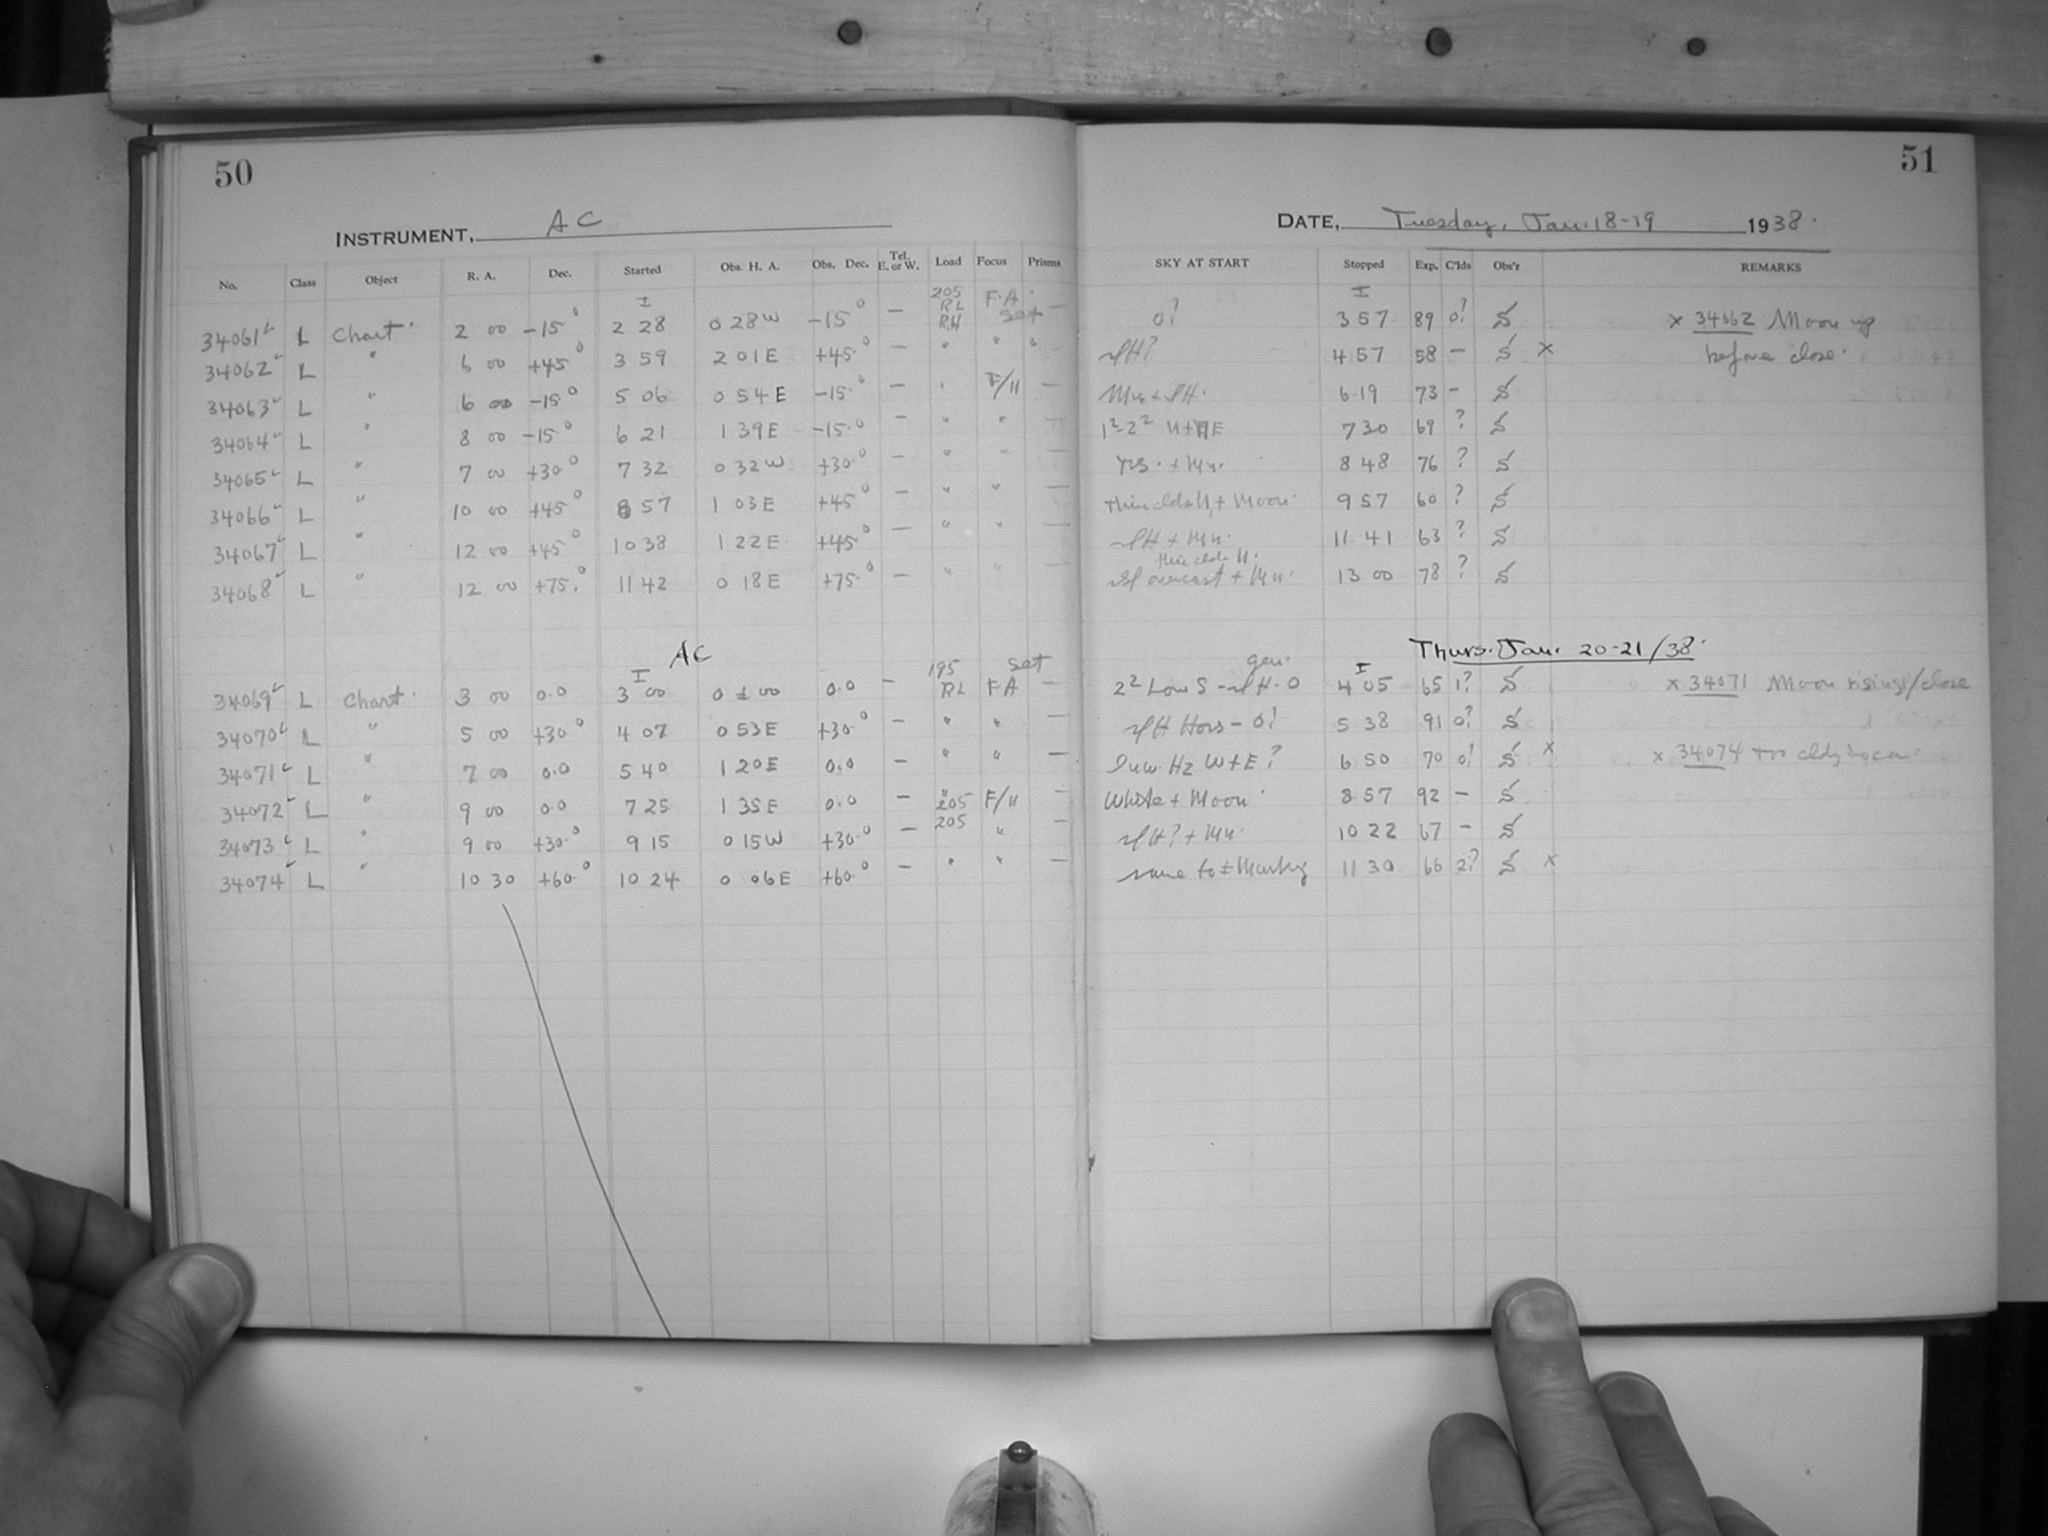 50
51
INSTRUMENT, AC
DATE, Tuesday, Jan. 18-19 1938.
No. Class Object R. A. Dec. Started Obs. H. A. Obs. Dec. Tel. E. or W. Load Focus Prisms SKY AT START Stopped Exp. C'lds Obs'r REMARKS
I 205 F.A. I
34061 L Chart. 2 00 -15° 2 28 0 28 W -15° — RL RH set — 0? 3 57 89 0? S x 34062 Moon up
34062 L " 6 00 +45° 3 59 2 01 E +45° — " " " H? 4 57 58 — S x before close.
34063 L " 6 00 -15° 5 06 0 54 E -15° — " F/11 — 6 19 73 — S
34064 L " 8 00 -15° 6 21 1 39 E -15° — " " — 7 30 69 ? S
34065 L " 7 00 +30° 7 32 0 32 W +30° — " " — + Mn. 8 48 76 ? S
34066 L " 10 00 +45° 8 57 1 03 E +45° — " " — thin clds + Moon. 9 57 60 ? S
34067 L " 12 00 +45° 10 38 1 22 E +45° — " " — + Mn. 11 41 63 ? S
thin clds H.
34068 L " 12 00 +75° 11 42 0 18 E +75° — " " — overcast + Mn. 13 00 78 ? S
AC
Thurs. Jan. 20-21/38.
I 195 set gen. I
34069 L Chart. 3 00 0.0 3 00 0 ± 00 0.0 — RL FA — 2² Low S - H - 0 4 05 65 1? S x 34071 Moon rising/close
34070 L " 5 00 +30° 4 07 0 53 E +30° — " " — H Hors - 0? 5 38 91 0? S
34071 L " 7 00 0.0 5 40 1 20 E 0.0 — " " — Hz W+E? 6 50 70 0? S x x 34074
34072 L " 9 00 0.0 7 25 1 35 E 0.0 — " 205 F/11 — White + Moon. 8 57 92 — S
34073 L " 9 00 +30° 9 15 0 15 W +30° — 205 " — H? + Mn. 10 22 67 — S
34074 L " 10 30 +60° 10 24 0 06 E +60° — " " — same to ± 11 30 66 2? S x